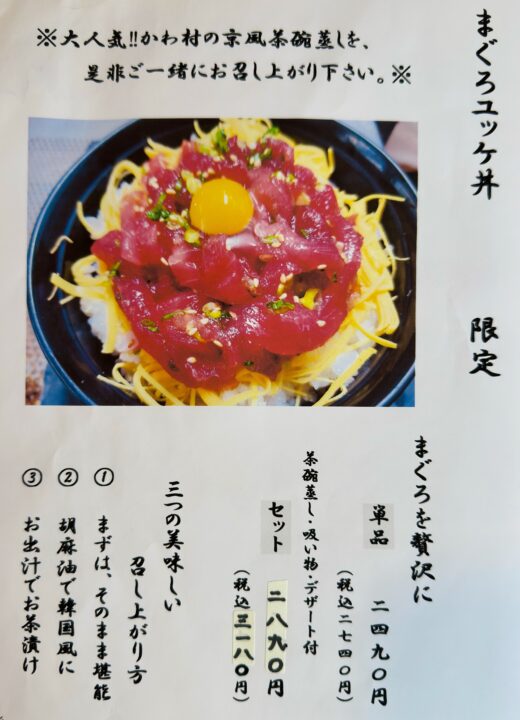 ※大人気!!かわ村の京風茶碗蒸しを、
是非ご一緒にお召し上がり下さい。※
まぐろユッケ丼 限定
まぐろを贅沢に
単品 二四九〇円
(税込二七四〇円)
茶碗蒸し・吸い物・デザート付
セット 二八九〇円
(税込三一八〇円)
三つの美味しい
召し上がり方
① まずは、そのまま堪能
② 胡麻油で韓国風に
③ お出汁でお茶漬け